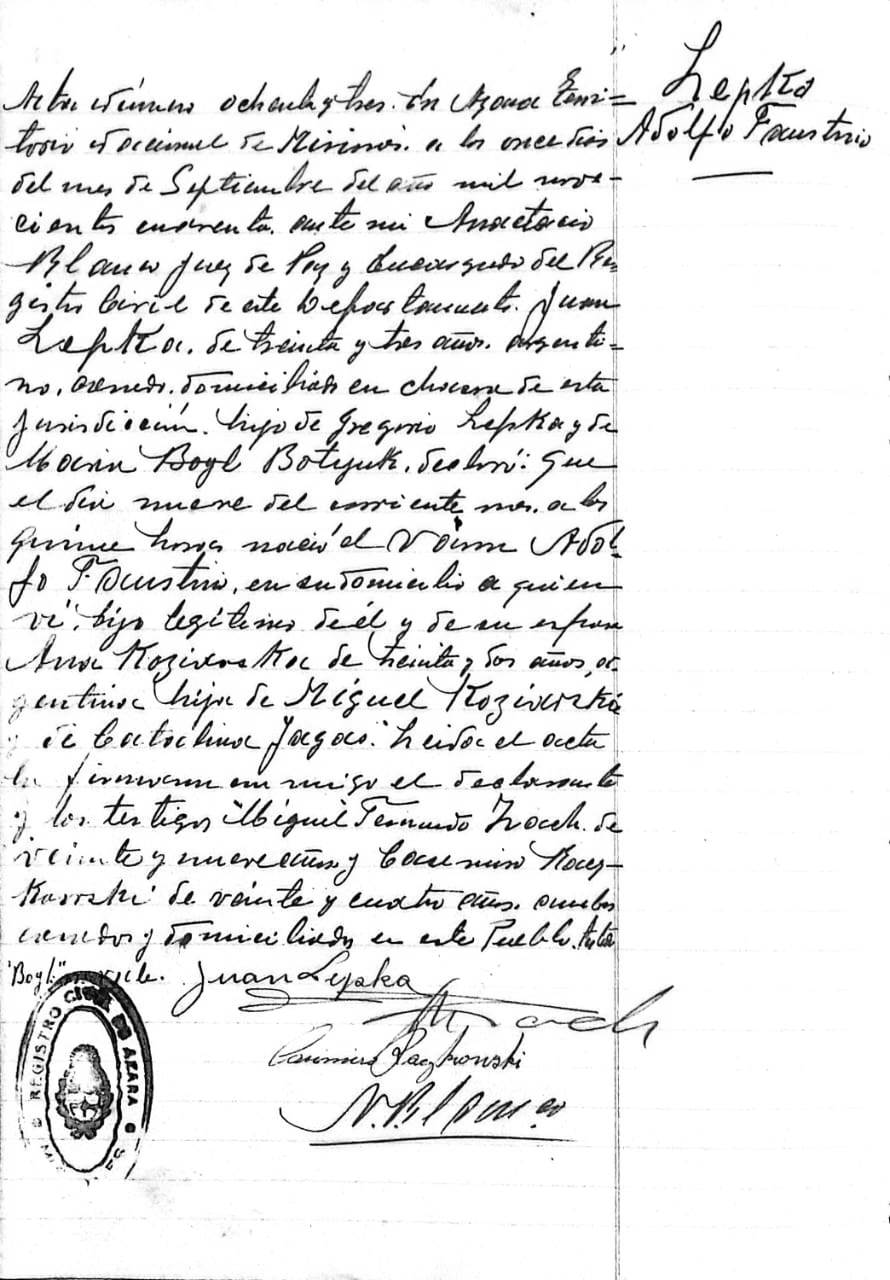 Lepka
Adolfo Faustino
Acta número ochenta y tres. En Azara Terri=
torio Nacional de Misiones. a los once dias
del mes de Septiembre del año mil nove-
cientos cuarenta. ante mi Anactacio
Blanco Juez de Paz y Encargado del Re-
gistro Civil de este Departamento. Juan
Lepka. de treinta y tres años. argenti=
no, casado. domiciliado en chacra de esta
Jurisdicción. hijo de Gregorio Lepka y de
Maria Bogl Botyuk. declaró: Que
el dia nueve del corriente mes. a las
quince horas nació el Varon Adol-
fo Faustino, en su domicilio a quien
vi, hijo legítimo de él y de su esposa
Ana Koziarska de treinta y dos años, ar
gentina hija de Miguel Koziarski
y de Catalina Jagas. Leida el acta
la firmaron conmigo el declarante
y los testigos Miguel Fernando Zrach. de
veinte y nueve años y Casemiro Kacz-
kowski de veinte y cuatro años. ambos
casados y domiciliados en este Pueblo.
"Bogl" no vale. Juan Lepka
Casimiro Kaczkowski
N. Blanco
REGISTRO CIVIL DE AZARA